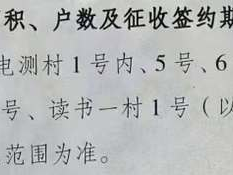 积、户数及征收签约期
电测村1号内、5号、6
号、读书一村1号（以
范围为准。